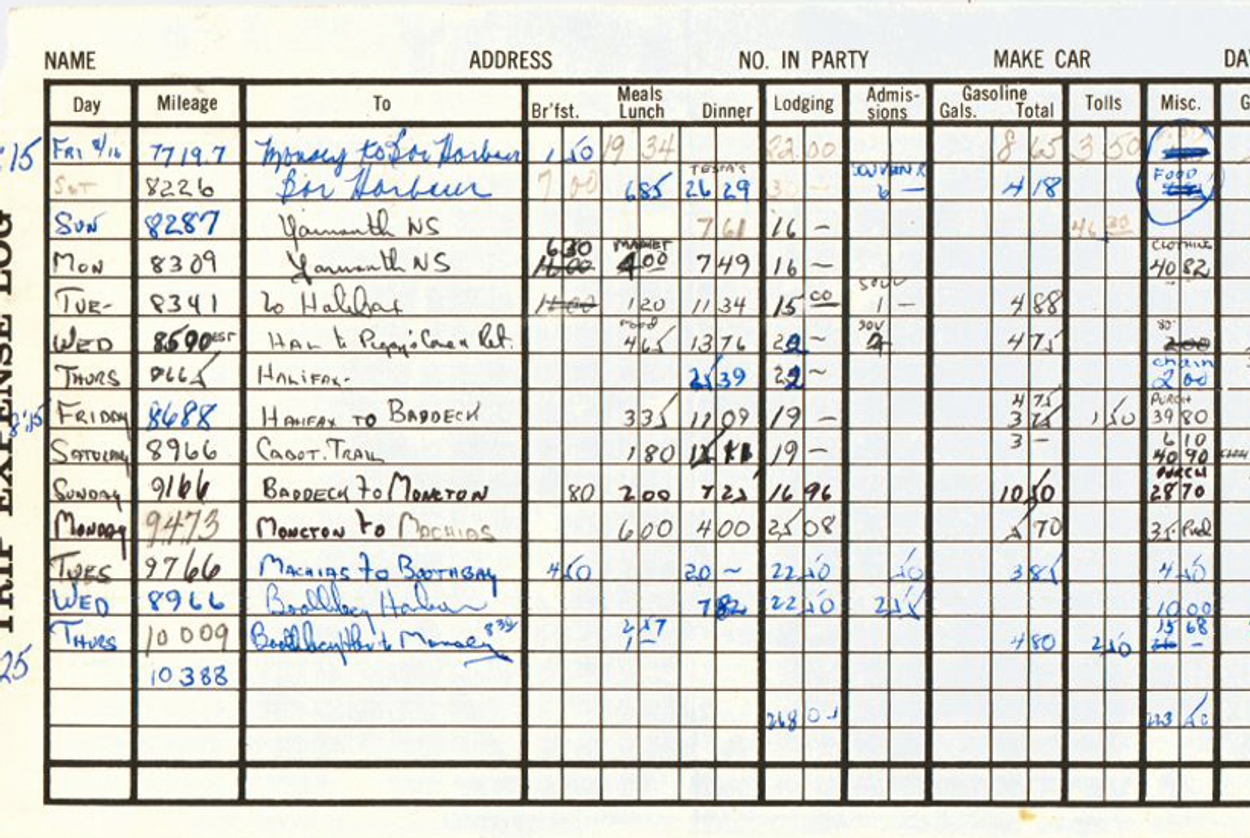 NAME ADDRESS NO. IN PARTY MAKE CAR
Day Mileage To Br'fst. Meals Lunch Dinner Lodging Admis-sions Gasoline Gals. Total Tolls Misc.
:15 FRI 8/16 7719.7 Monsey to Bar Harbour 1 50 19 34 22 00 8 65 3 50
SAT 8226 Bar Harbour 7 00 6 85 TESTA'S 26 29 SOUVENIR 6 — 4 18 FOOD
SUN 8287 Yarmouth NS 7 61 16 –
MON 8309 Yarmouth NS 6 30 MARKET 4 00 7 49 16 – CLOTHING 40 82
TUE- 8341 to Halifax 1 20 11 34 15 00 SOUV 1 – 4 88
WED 8590 EST HAL to Peggy's Cove & Ret. FOOD 4 65 13 76 SOV 4 75 2 00
THURS HALIFAX- 25 39 chain 2 00
FRIDAY 8688 HALIFAX TO BADDECK 3 35 11 09 19 – 4 75 1 50 PURCH 39 80
SATURDAY 8966 CABOT. TRAIL 1 80 19 – 3 – 6 10 40 90
SUNDAY 9166 BADDECK TO MONCTON 80 2 00 7 25 16 96 10 50 PURCH 28 70
MONDAY 9473 MONCTON to MACHIAS 6 00 4 00 25 08 5 70
TUES 9766 MACHIAS TO BOOTHBAY 4 50 20 ~ 22 50 50 3 85 4 50
WED 8966 Boothbay Harbour 7 82 22 50 10 00
THURS 10 009 4 80 2 50 15 68
10 388
268
TRIP EXPENSE LOG